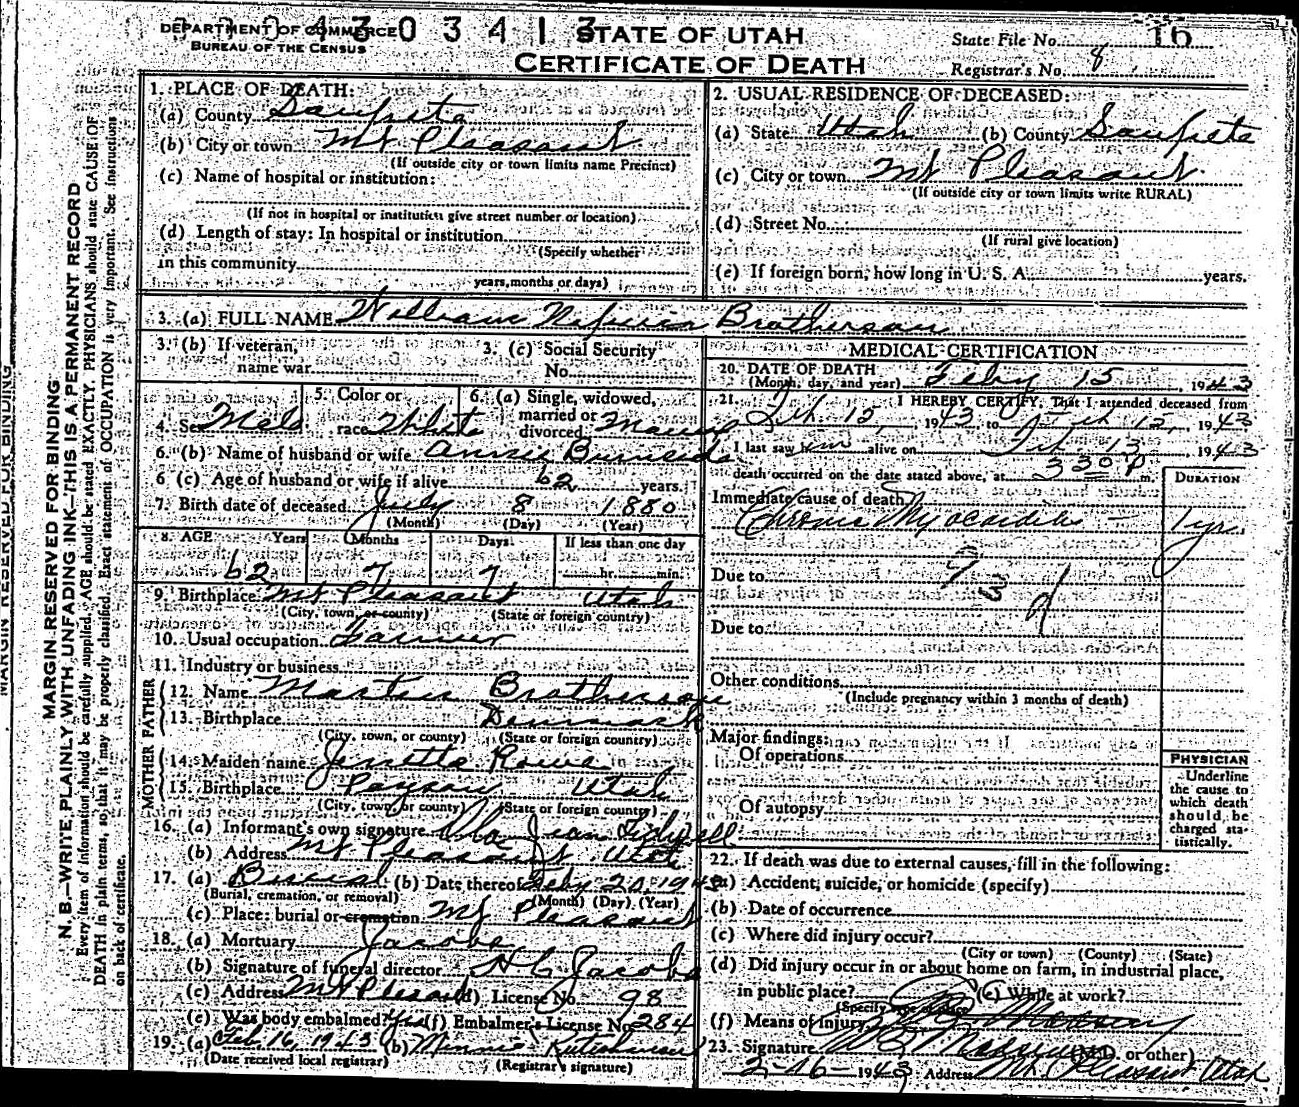 DEPARTMENT OF COMMERCE
BUREAU OF THE CENSUS
430 3 4 1 3
STATE OF UTAH
CERTIFICATE OF DEATH
State File No. 16
Registrar's No. 8
MARGIN RESERVED FOR BINDING
MARGIN RESERVED FOR BINDING
N. B.—WRITE PLAINLY WITH UNFADING INK—THIS IS A PERMANENT RECORD
Every item of information should be carefully supplied. AGE should be stated EXACTLY. PHYSICIANS should state CAUSE OF
DEATH in plain terms, so that it may be properly classified. Exact statement of OCCUPATION is very important. See instructions
on back of certificate.
1. PLACE OF DEATH:
(a) County Sanpete
(b) City or town Mt Pleasant
(If outside city or town limits name Precinct)
(c) Name of hospital or institution:
(If not in hospital or institution give street number or location)
(d) Length of stay: In hospital or institution
(Specify whether
in this community
years, months or days)
2. USUAL RESIDENCE OF DECEASED:
(a) State Utah (b) County Sanpete
(c) City or town Mt Pleasant
(If outside city or town limits write RURAL)
(d) Street No.
(If rural give location)
(e) If foreign born, how long in U. S. A. years.
3. (a) FULL NAME William Brotherson
3. (b) If veteran, name war
3. (c) Social Security No.
4. Sex Male
5. Color or race White
6. (a) Single, widowed, married or divorced Married
6. (b) Name of husband or wife Annie Burnside
6 (c) Age of husband or wife if alive 62 years.
7. Birth date of deceased July 8 1880
(Month) (Day) (Year)
8. AGE Years Months Days If less than one day
62 7 7 hr. min.
9. Birthplace Mt Pleasant Utah
(City, town, or county) (State or foreign country)
10. Usual occupation Farmer
11. Industry or business
FATHER
12. Name Martin Brotherson
13. Birthplace Denmark
(City, town, or county) (State or foreign country)
MOTHER
14. Maiden name Jenetta Rowe
15. Birthplace Payson Utah
(City, town, or county) (State or foreign country)
16. (a) Informant's own signature Jean Tidwell
(b) Address Mt Pleasant Utah
17. (a) Burial (b) Date thereof Feby 20, 1943
(Burial, cremation, or removal) (Month) (Day) (Year)
(c) Place: burial or cremation Mt Pleasant
18. (a) Mortuary Jacobs
(b) Signature of funeral director H C Jacobs
(c) Address Mt Pleasant (d) License No. 98
(e) Was body embalmed? Yes (f) Embalmer's License No. 284
19. (a) Feb. 16, 1943 (b) Minnie
(Date received local registrar) (Registrar's signature)
MEDICAL CERTIFICATION
20. DATE OF DEATH
(Month, day, and year) Feby 15, 1943
21. I HEREBY CERTIFY, That I attended deceased from
Feb. 12, 1943 to Feb 12, 1943
I last saw him alive on Feb 13, 1943
death occurred on the date stated above, at 3 30 P m.
DURATION
Immediate cause of death
Chronic Myocarditis — 1 yr.
Due to
93 d
Due to
Other conditions
(Include pregnancy within 3 months of death)
Major findings:
Of operations
Of autopsy
PHYSICIAN
Underline
the cause to
which death
should be
charged sta-
tistically.
22. If death was due to external causes, fill in the following:
(a) Accident, suicide, or homicide (specify)
(b) Date of occurrence
(c) Where did injury occur?
(City or town) (County) (State)
(d) Did injury occur in or about home on farm, in industrial place,
in public place? (e) While at work?
(f) Means of injury
23. Signature (M.D. or other)
2-16-1943 Address Mt Pleasant Utah